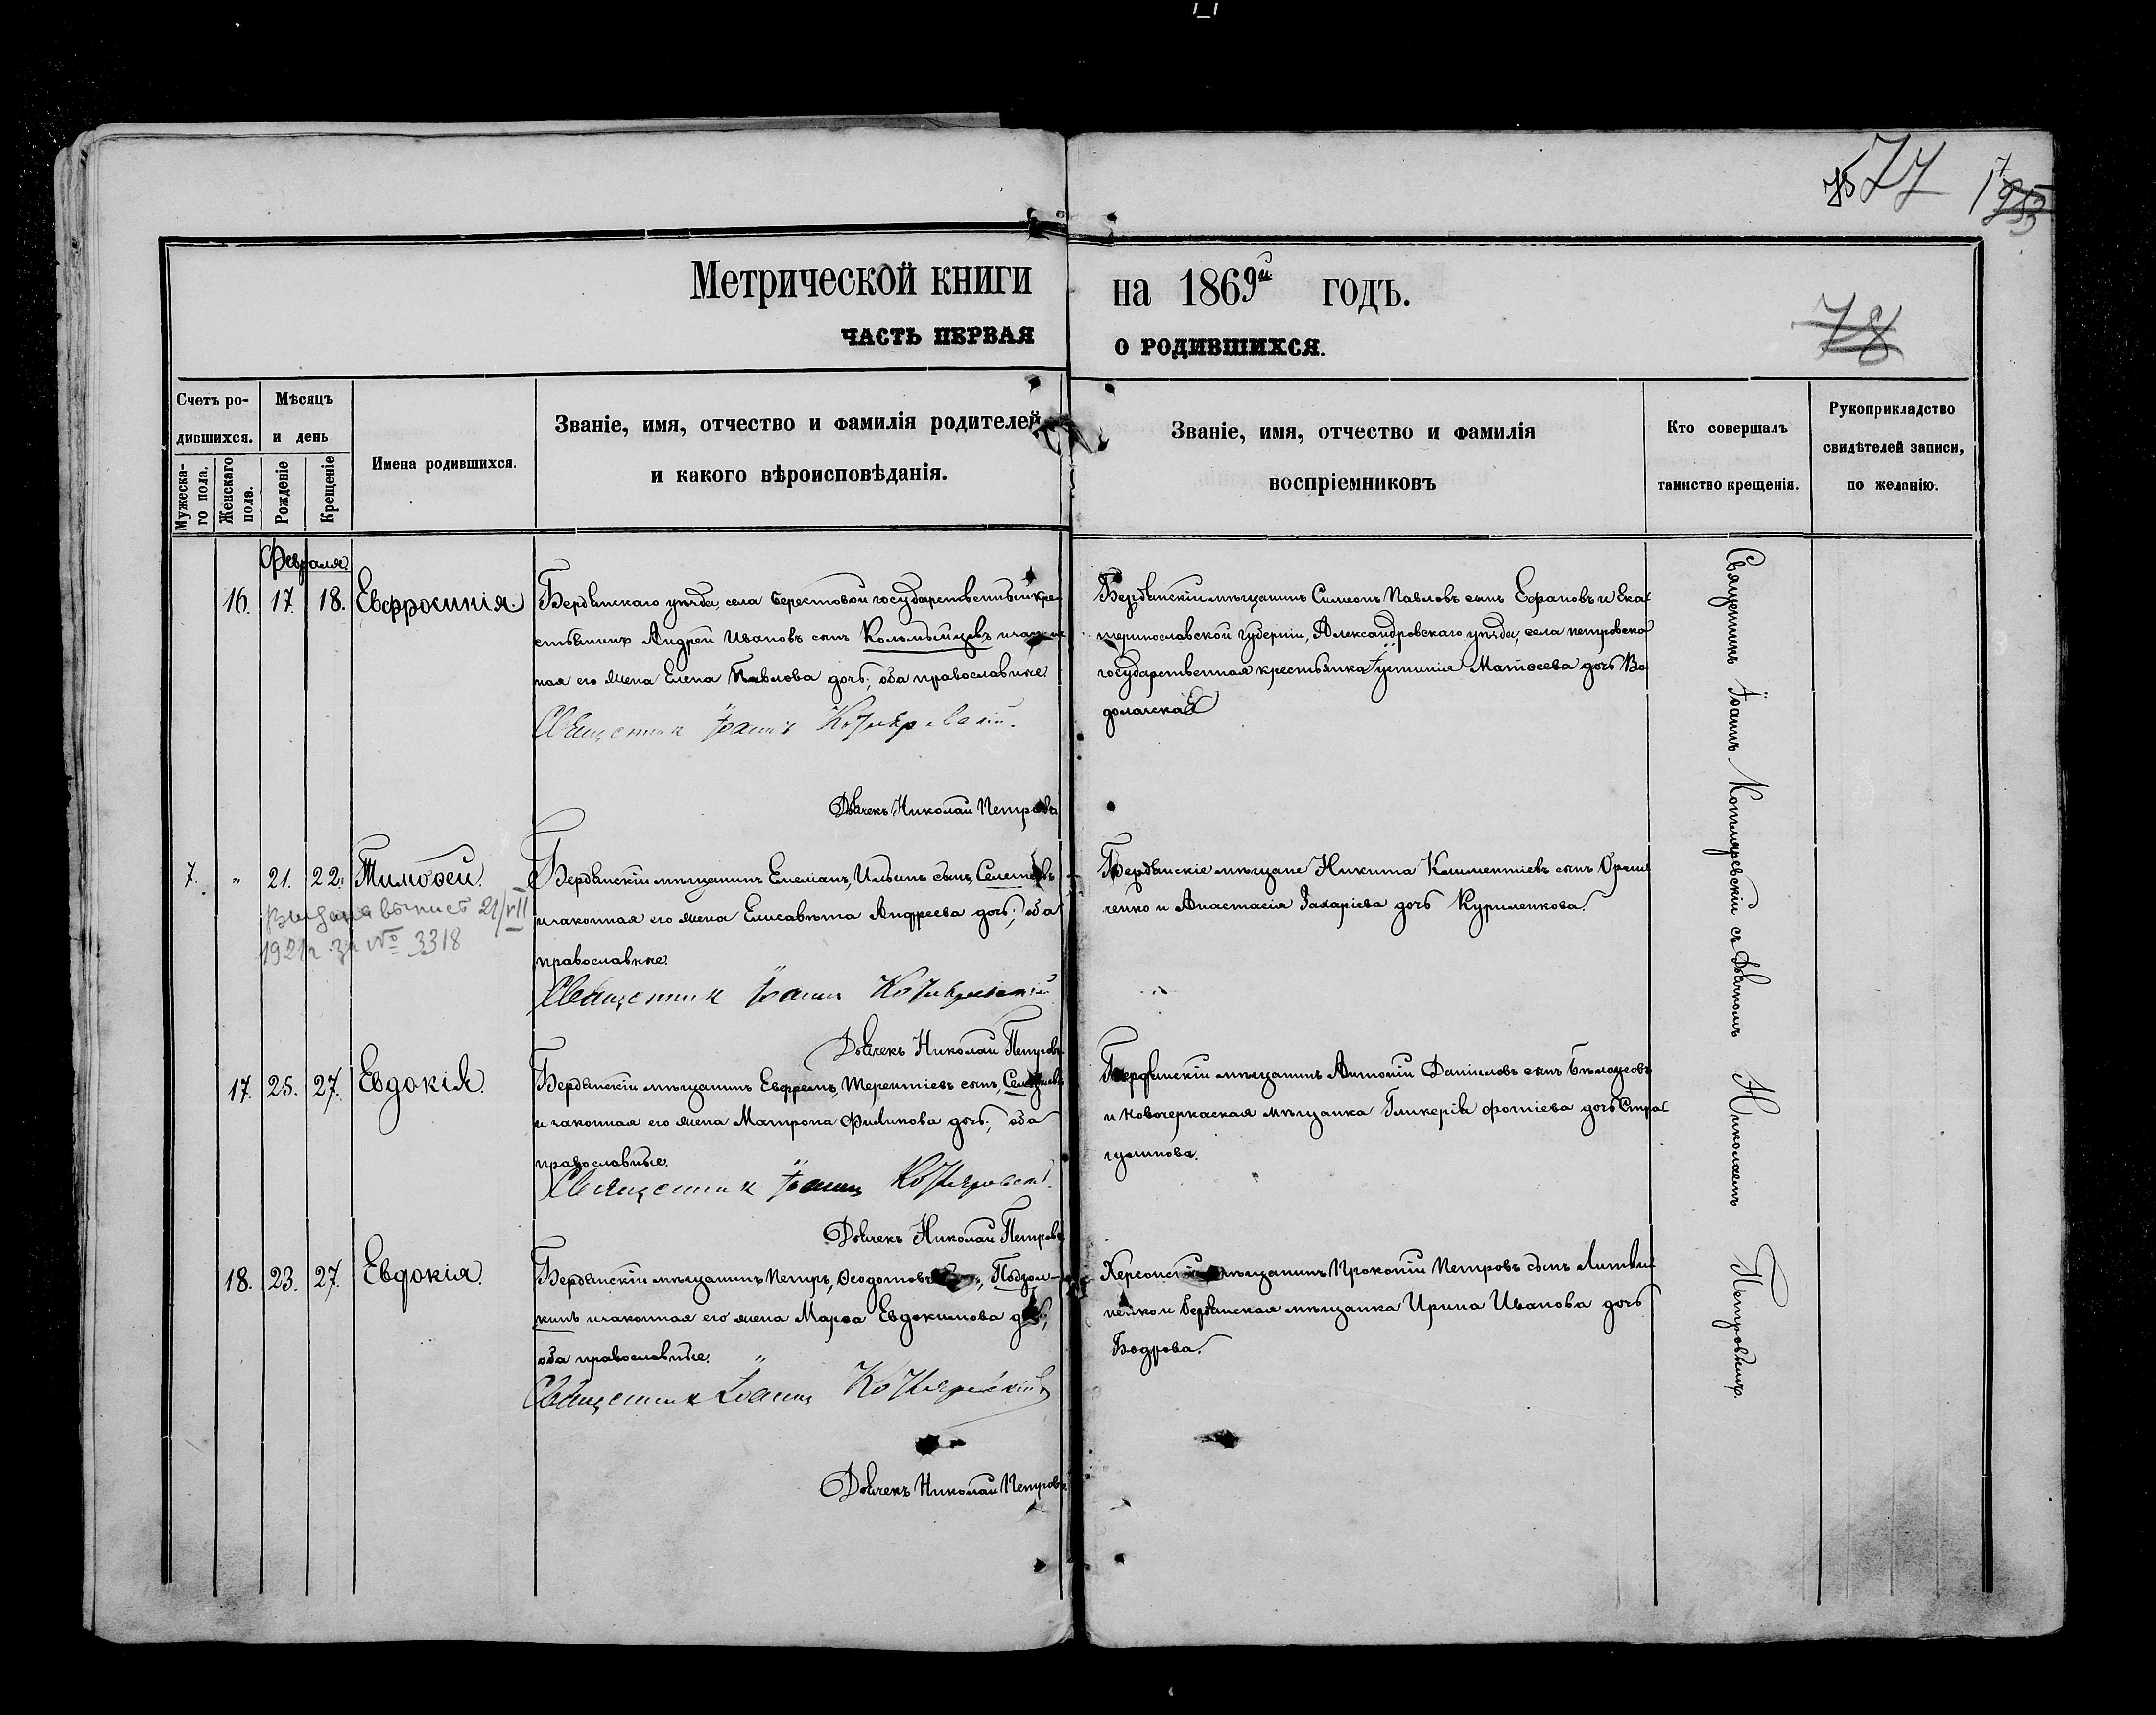 77
78
Метрической книги на 1869й годъ.
ЧАСТЬ ПЕРВАЯ О РОДИВШИХСЯ.
Счетъ родившихся.
Мужескаго пола.
Женскаго пола.
Мѣсяцъ и день
Рожденіе
Крещеніе
Имена родившихся.
Званіе, имя, отчество и фамилія родителей
и какого вѣроисповѣданія.
Званіе, имя, отчество и фамилія
воспріемниковъ
Кто совершалъ
таинство крещенія.
Рукоприкладство
свидѣтелей записи,
по желанію.
Февраля.
16. 17. 18. Евфросинія.
Бердянскаго уѣзда, села Берестовой государственный кре-
стьянинъ Андрей Ивановъ сынъ Коломыйцевъ и закон
ная его жена Елена Павлова дочь; оба православные
Священникъ Іоаннъ Котляревскій.
Дьячекъ Николай Петровъ
Бердянскій мѣщанинъ Симеонъ Павловъ сынъ Ефановъ и Ека
теринославской губерніи, Александровскаго уѣзда, села петровска
государственная крестьянка Іустинія Матѳеева дочь Во
долажская
7. " 21. 22. Тимоѳей.
Выдана выпись 21/VII
1921 г. за № 3318
Бердянскій мѣщанинъ Емеліанъ, Ильинъ сынъ,
и законная его жена Елисавета Андреева дочь; оба
православные.
Священникъ Іоаннъ Котляревскій
Дьячекъ Николай Петровъ
Бердянскіе мѣщане Никита Климентіевъ сынъ Ореш
ченко и Анастасія Захаріева дочь Куриленкова.
17. 25. 27. Евдокія.
Бердянскій мѣщанинъ Евфремъ, Терентіевъ сынъ,
и законная его жена Матрона Филипова дочь; оба
православные.
Священникъ Іоаннъ Котляревскій
Дьячекъ Николай Петровъ
Бердянскій мѣщанинъ Антоній Даніиловъ сынъ Бѣлоусовъ
и Новочеркаская мѣщанка Гликерія Фотіева дочь
18. 23. 27. Евдокія.
Бердянскій мѣщанинъ Петръ, Ѳеодотовъ
и законная его жена Марѳа Евдокимова дочь;
оба православные.
Священникъ Іоаннъ Котляревскій
Дьячекъ Николай Петровъ
Херсонскій мѣщанинъ Прокопій Петровъ сынъ Литви
ненко и Бердянская мѣщанка Ирина Иванова дочь
Бодрова.
Священникъ Іоаннъ Котляревскій съ дьячкомъ Николаемъ Петровымъ.